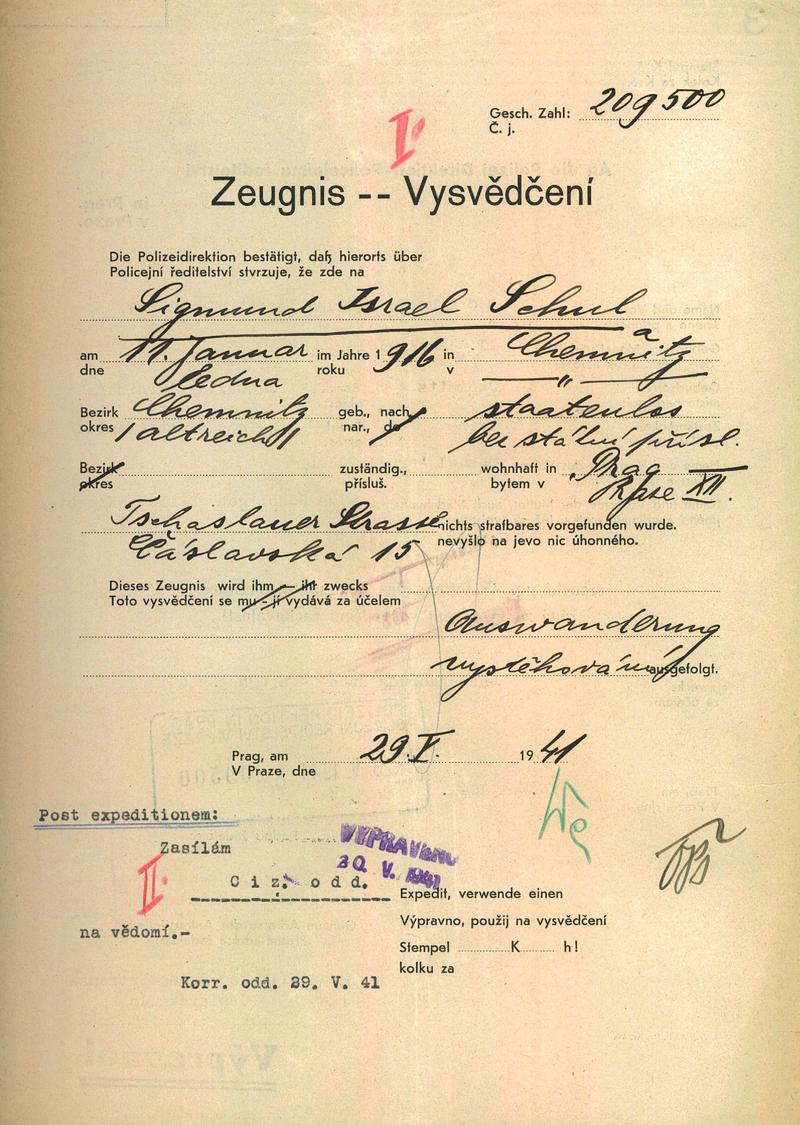 Gesch. Zahl: 209500
Č. j.
I.
Zeugnis -- Vysvědčení
Die Polizeidirektion bestätigt, daß hierorts über
Policejní ředitelství stvrzuje, že zde na
Sigmund Israel Schul
am 11. Januar im Jahre 1916 in Chemnitz
dne ledna roku v — " —
Bezirk Chemnitz geb., nach staatenlos
okres /altreich/ nar., do bez stální přísl.
Bezirk zuständig., wohnhaft in Prag
okres přísluš. bytem v Praze XII.
Tschaslauer Strasse nichts strafbares vorgefunden wurde.
Čáslavská 15 nevyšlo na jevo nic úhonného.
Dieses Zeugnis wird ihm — ihr zwecks
Toto vysvědčení se mu - jí vydává za účelem
Auswanderung
vystěhování ausgefolgt.
Prag, am 29.V. 1941
V Praze, dne
Post expeditionem:
Zasílám
VYPRAVENO
30. V. 1941
II.
Ciz. odd.
Expedit, verwende einen
Výpravno, použij na vysvědčení
na vědomí.-
Stempel K h!
kolku za
Korr. odd. 29. V. 41